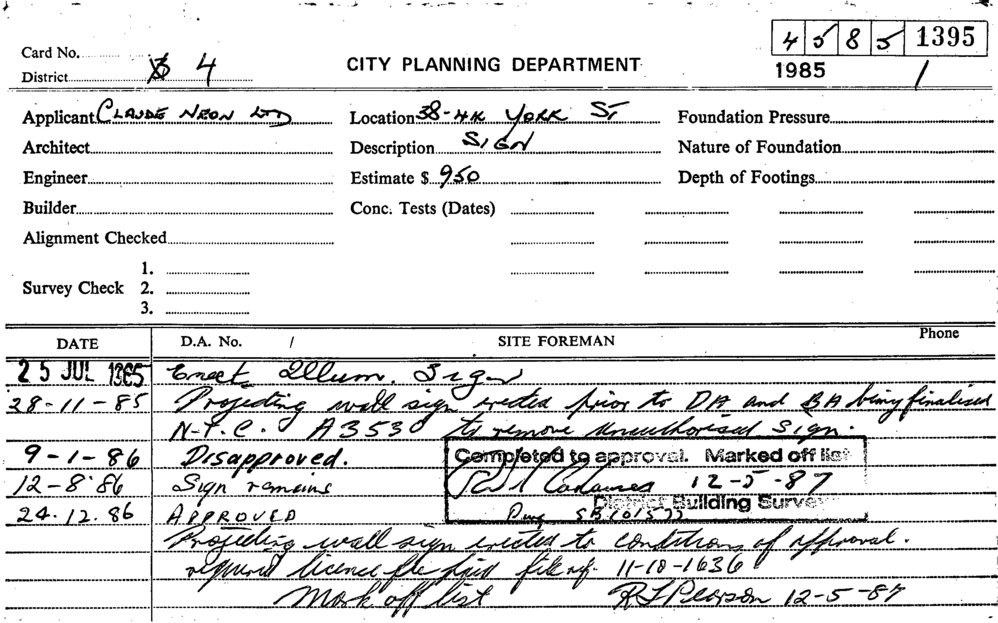 4 5 8 5 1395
Card No.
CITY PLANNING DEPARTMENT
1985 /
District 4
Applicant CLAUDE NEON LTD Location 38-44 YORK ST Foundation Pressure
Architect Description SIGN Nature of Foundation
Engineer Estimate $ 950 Depth of Footings
Builder Conc. Tests (Dates)
Alignment Checked
1.
Survey Check 2.
3.
DATE D.A. No. / SITE FOREMAN Phone
25 JUL 1985 Erect Illum. Sign
28-11-85 Projecting wall sign erected prior to DA and BA being finalised
N.T.C. A3530 to remove unauthorised sign.
9-1-86 Disapproved. Completed to approval. Marked off list
12-8-86 Sign remains 12-5-87
District Building Surveyor
24.12.86 APPROVED Dwg SB101577
Projecting wall sign erected to conditions of approval.
required licence fee paid file ref. 11-10-1636
Mark off list R L Pearson 12-5-87